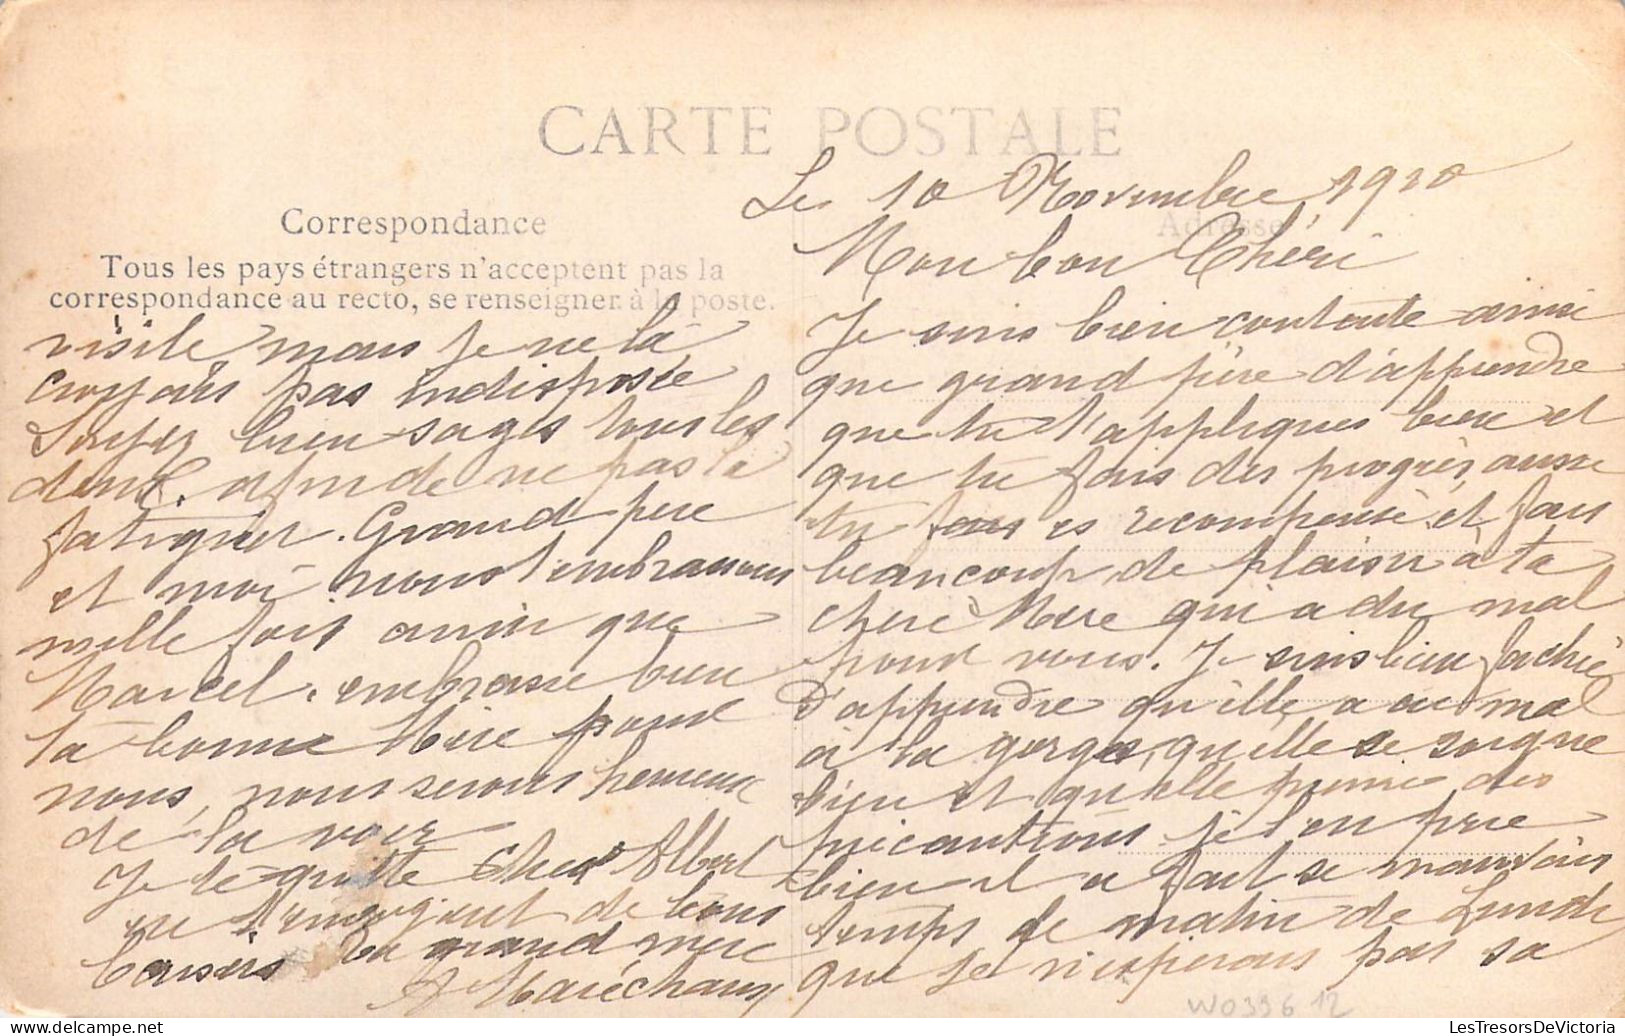 CARTE POSTALE
Correspondance
Tous les pays étrangers n'acceptent pas la
correspondance au recto, se renseigner à la poste.
Adresse
Le 10 Novembre 1910
Mon bon Chéri
Je suis bien contente ainsi
que grand père d'apprendre
que tu t'appliques bien et
que tu fais des progrès, aussi
tu es recompensé, et fais
beaucoup de plaisir à ta
chère Mère qui a du mal
pour vous. Je suis bien fachée
d'apprendre qu'ille a eu mal
à la gorge, qu'elle se soigne
bien et qu'elle prenne des
précautions je l'en prie
bien il a fait se mauvais
temps le matin de Lundi
que je n'espérais pas sa
visite, mais je ne là
croyais pas indisposée
Soyez bien sages tous les
deux, afin de ne pas la
fatiguer. Grand père
et moi nous t'embrassons
mille fois ainsi que
Marcel, embrasse bien
ta bonne Mère pour
nous, nous serons heureux
de la voir
Je te quitte Cher Albert
en t'envoyant de bons
baisers Ta grand mère
A Maréchaux
W0396 12
LesTresorsDeVictoria
© LesTresorsDeVictoria